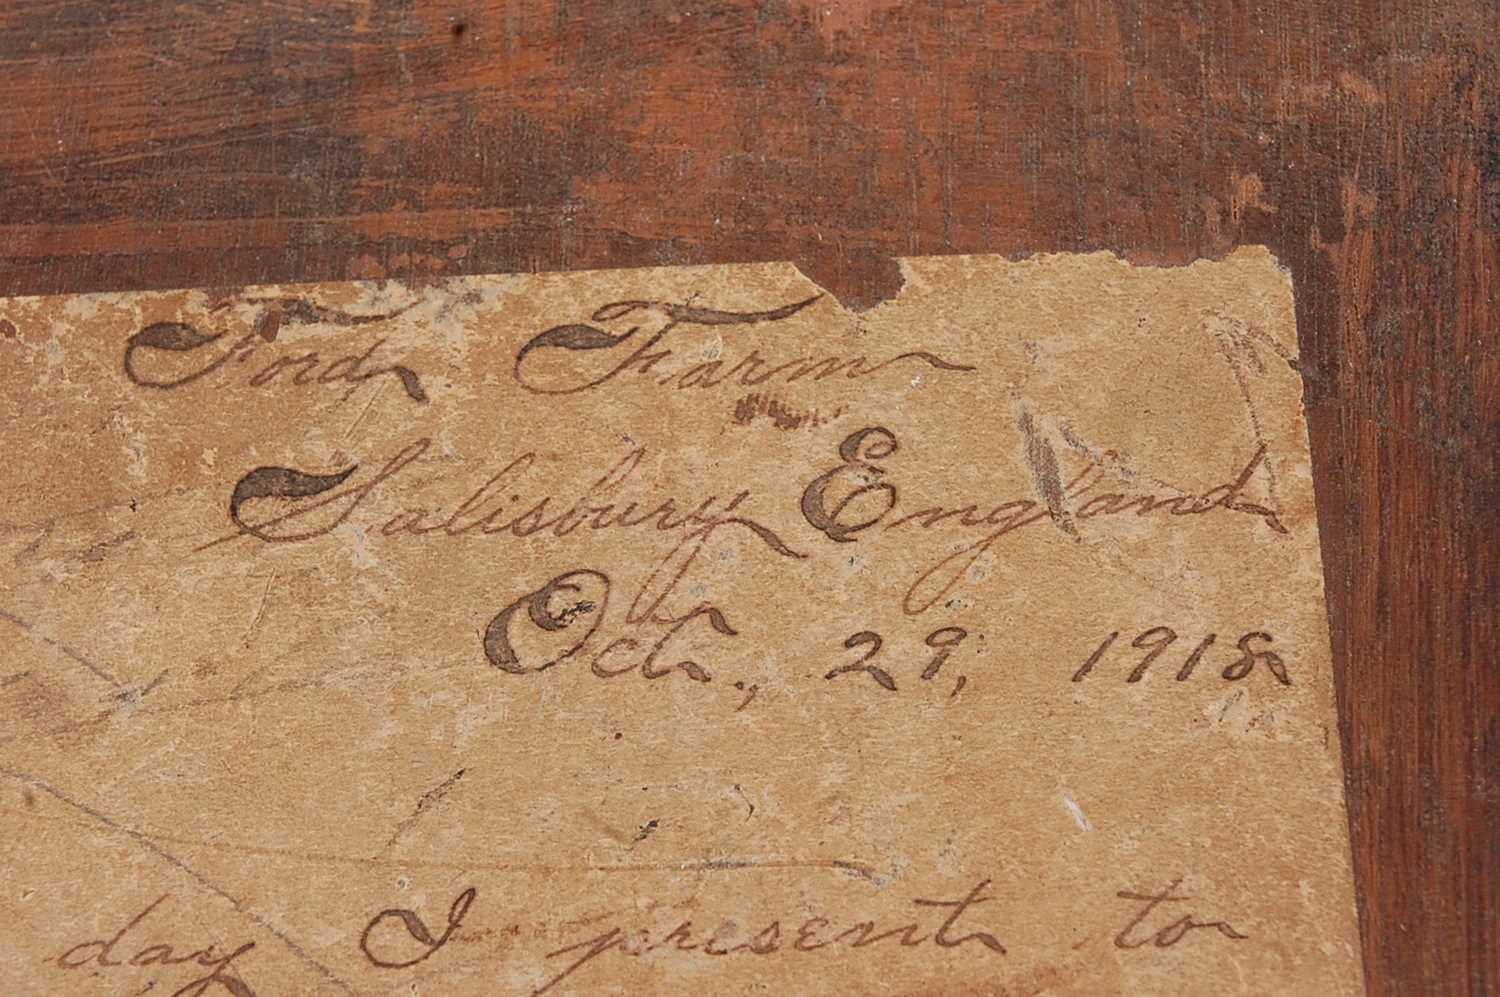 Ford Farm
Salisbury England
Oct., 29, 1918
day I present to